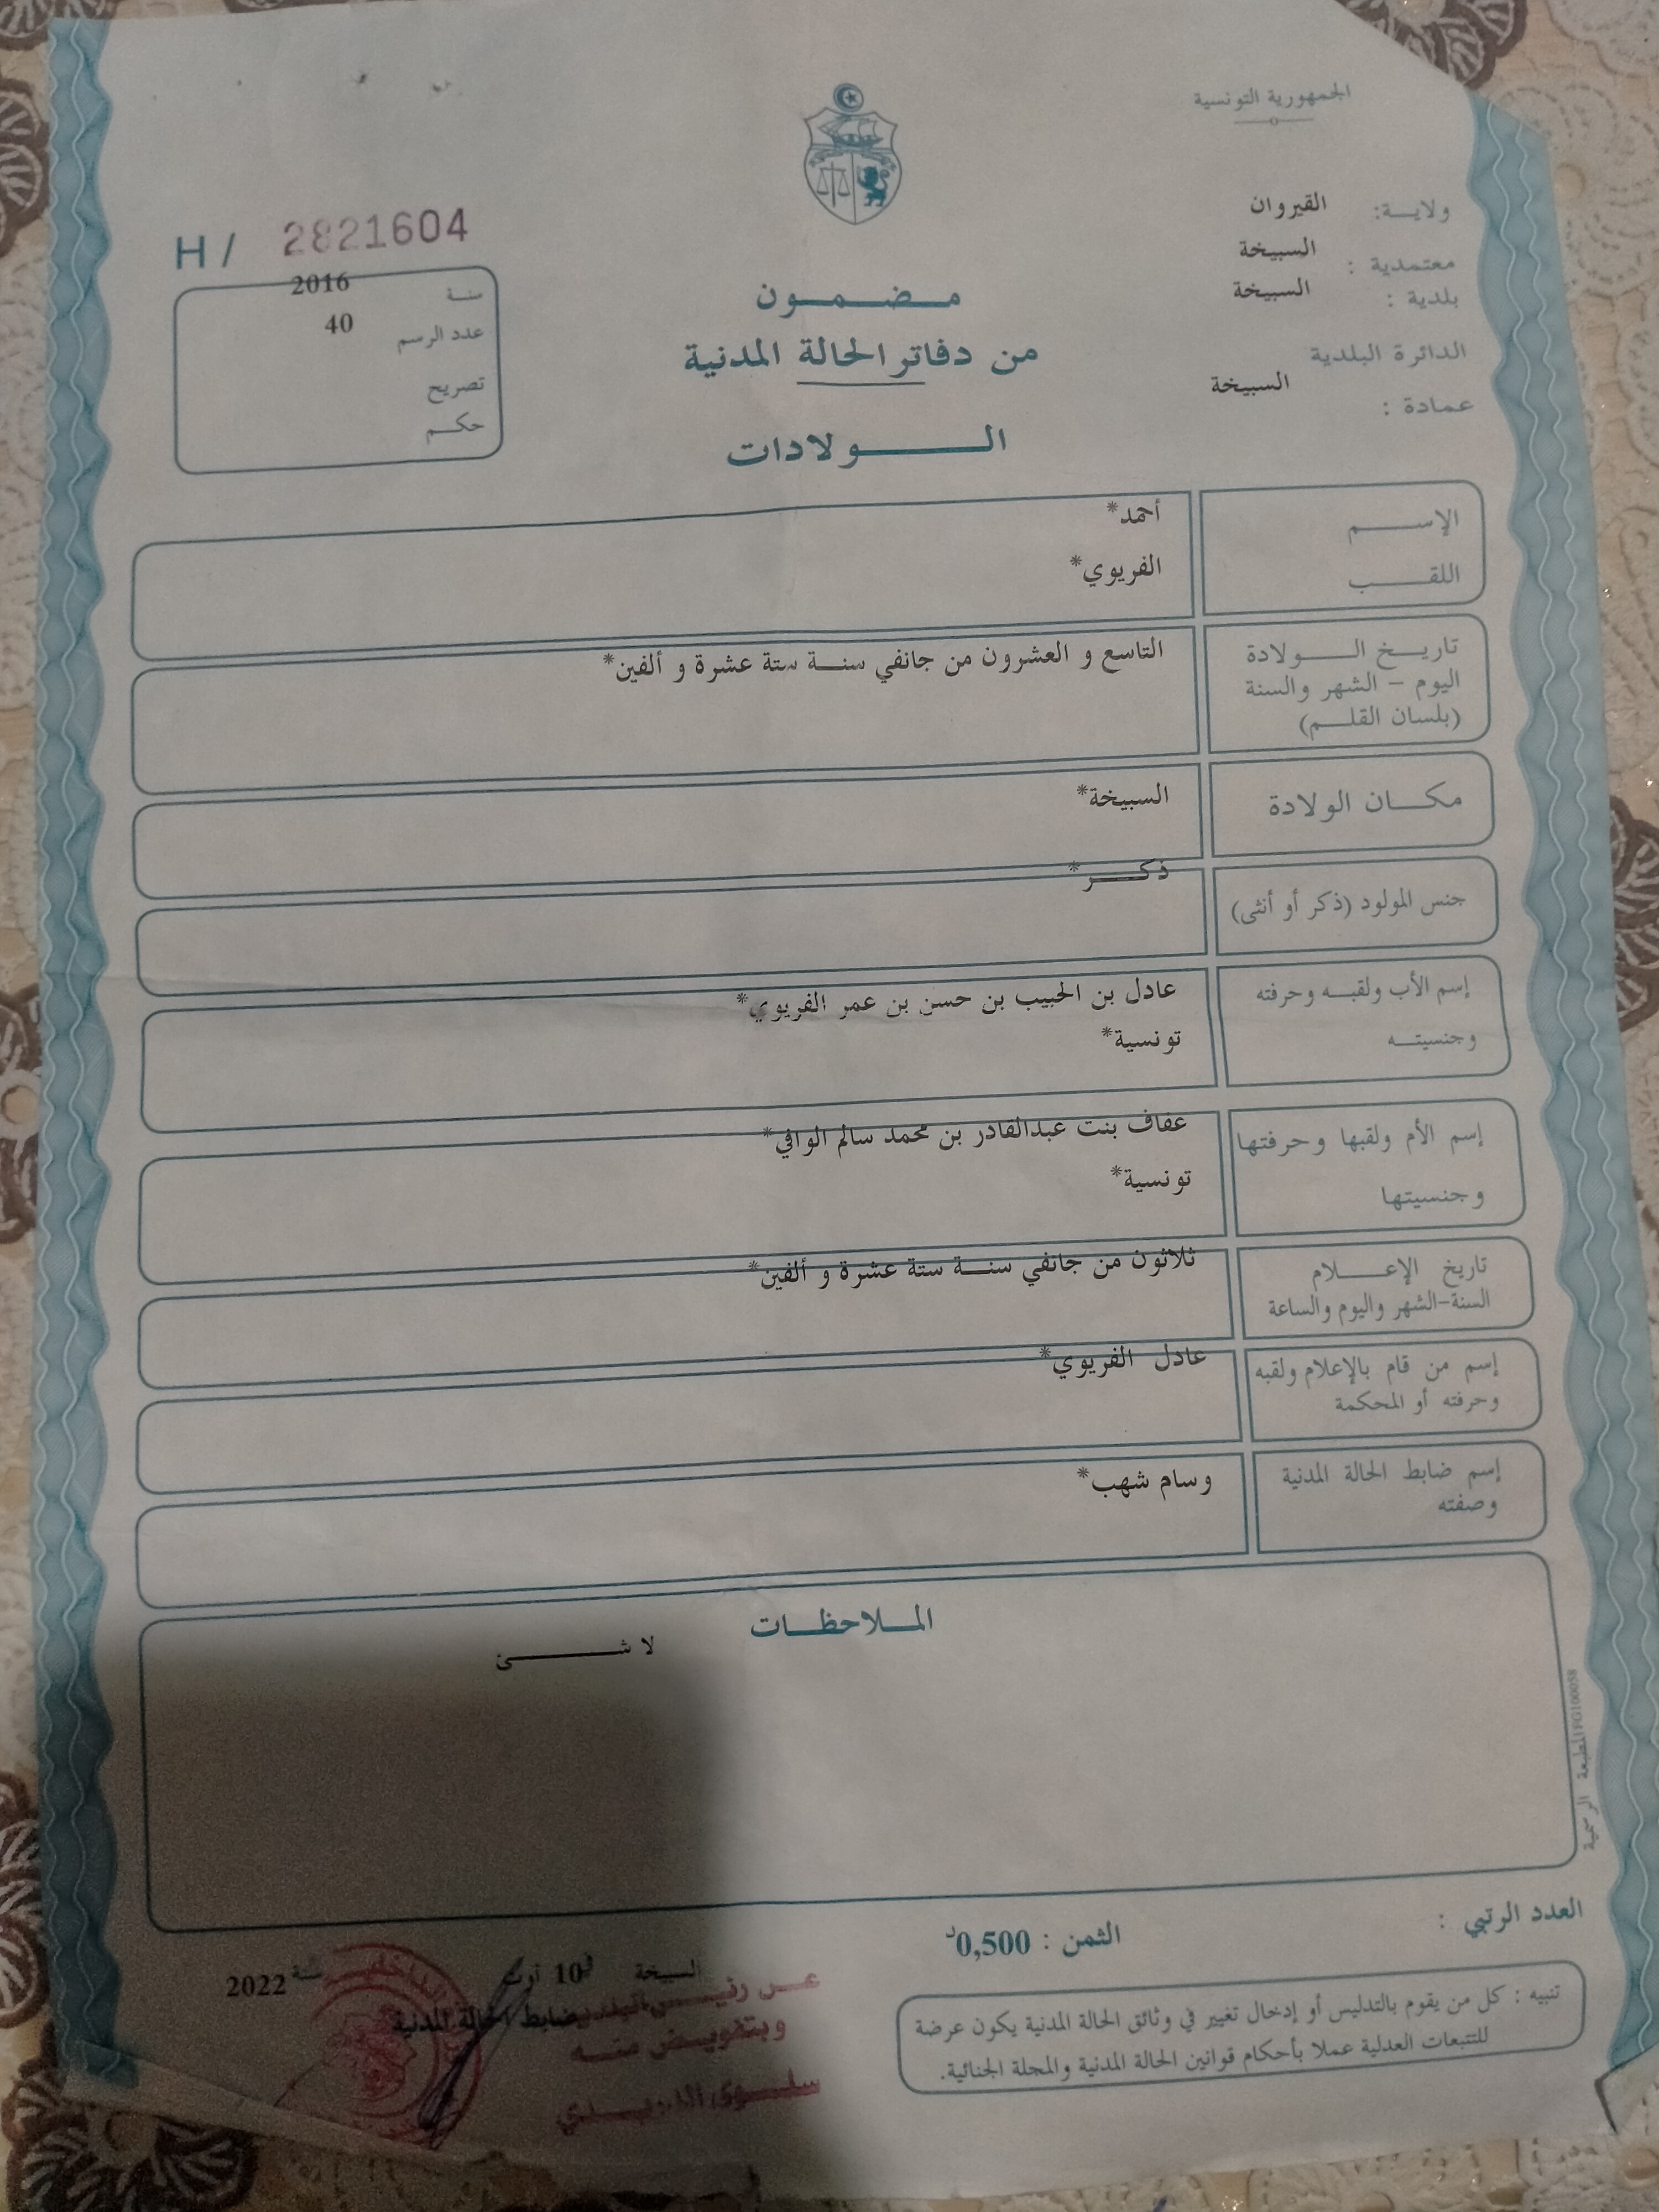 الجمهورية التونسية
ولايـــة: القيروان
معتمدية : السبيخة
بلدية : السبيخة
الدائرة البلدية
عمادة : السبيخة
H / 2821604
سنـة 2016
عدد الرسم 40
تصريح
حكـــم
مـــضـــمـــون
من دفاتر الحالة المدنية
الـــــــولادات
الإســـــم أحمد*
اللقـــــب الفريوي*
تاريـــخ الـــــولادة التاسع و العشرون من جانفي سنـــة ستة عشرة و ألفين*
اليوم – الشهر والسنة
(بلسان القلـــم)
مكـــان الولادة السبيخة*
جنس المولود (ذكر أو أنثى) ذكـــــر*
إسم الأب ولقبـــه وحرفته عادل بن الحبيب بن حسن بن عمر الفريوي*
وجنسيتـــه تونسية*
إسم الأم ولقبها وحرفتها عفاف بنت عبدالقادر بن محمد سالم الوافي*
وجنسيتها تونسية*
تاريخ الإعـــــلام ثلاثون من جانفي سنـــة ستة عشرة و ألفين*
السنة–الشهر واليوم والساعة
إسم من قام بالإعلام ولقبه عادل الفريوي*
وحرفته أو المحكمة
إسم ضابط الحالة المدنية وسام شهب*
وصفته
المـــلاحظـــات
لا شـــــــئ
المطبعة الرسمية FG100058
العدد الرتبي :
الثمن : 0,500د
تنبيه : كل من يقوم بالتدليس أو إدخال تغيير في وثائق الحالة المدنية يكون عرضة
للتتبعات العدلية عملا بأحكام قوانين الحالة المدنية والمجلة الجنائية.
السبيخة في 10 أوت سنة 2022
ضابط الحالة المدنية
عـــن رئيـــس البلدية
وبتفويض منـــه